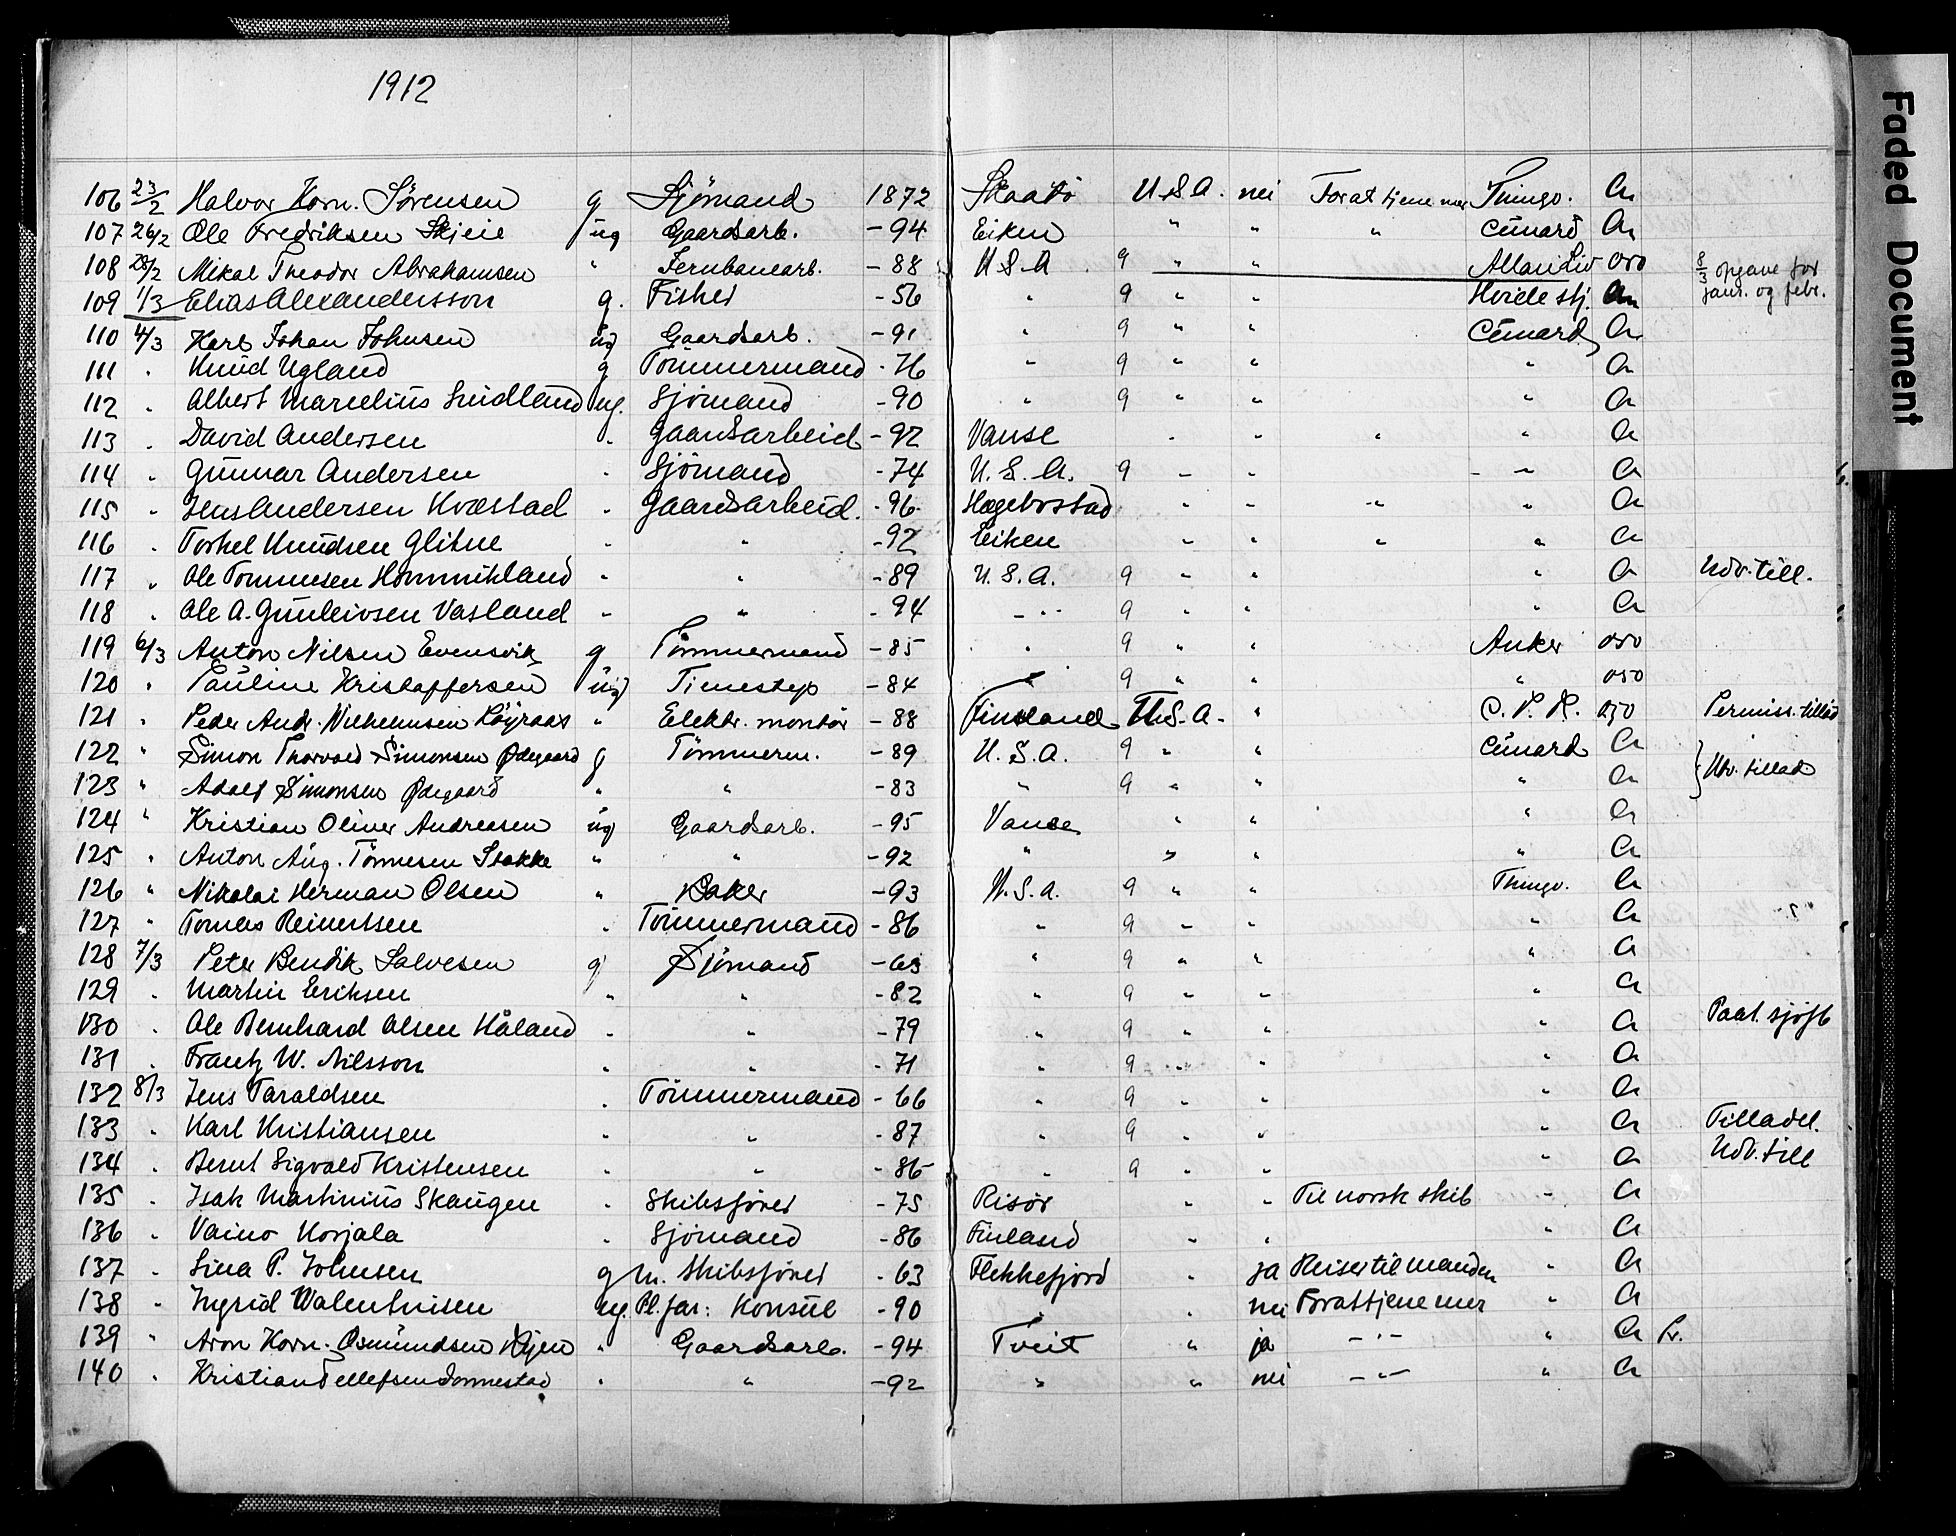 1912
106 23/2 Halvor Korn. Sörensen g Sjömand 1872 Skaatö U.S.A. nei For at tjene mer Thingv. A
107 26/2 Ole Fredriksen Skjeie ug Gaardsarb. -94 Eiken " " " Cunard A
108 28/2 Mikal Theodor Abrahamsen " Jernbanearb. -88 U.S.A 9 " " Allan Liv oso 8/3 opgave for
109 1/3 Elias Alexandersson g. Fisker -56 " 9 " " Hvide stj. A janr. og febr.
110 4/3 Karl Johan Johnsen ug Gaardsarb. -91 " 9 " " Cunard A
111 " Knud Ugland g Tömmermand -76 " 9 " " " A
112 " Albert Marcelius Sindland ug. Sjömand -90 " 9 " " " A
113 " David Andersen " Gaardsarbeid -92 Vanse " " " " A
114 " Gunnar Andersen " Sjömand -74 U.S.A. 9 " " " A
115 " Jens Andersen Kvæstad " Gaardsarbeid. -96 Hægebostad " " " " A
116 " Torkel Knudsen Glitne " " -92 Eiken " " " " A
117 " Ole Tommesen Hommikland " " -89 U.S.A. 9 " " " A Udv. till.
118 " Ole A. Gunleivsen Vasland " " -94 " 9 " " " A
119 6/3 Anton Nilsen Evensvik g Tömmermand -85 " 9 " " Anker oso
120 " Pauline Kristoffersen ug Tjenestep -84 " 9 " " " oso
121 " Peder Andr. Vilhelmsen Röyraas " Elektr. montör -88 Finsland U.S.A. " C.P.R. oso Permiss. tillad
122 " Simon Thorvald Simonsen Ødegaard g Tömmerm. -89 U.S.A. 9 " " Cunard A
123 " Adolf Simonsen Ødegaard " " -83 " 9 " " " A Utv. tillad
124 " Kristian Oliver Andreasen ug Gaardsarb. -95 Vanse " " " A
125 " Anton Aug. Tönnesen Stokke " " -92 " " " " A
126 " Nikolai Herman Olsen " Baker -93 U.S.A. 9 " " Thingv. A
127 " Tomas Reinertsen " Tömmermand -86 " 9 " " " A
128 7/3 Peter Bendik Salvesen g Sjömand -63 " 9 " " " A
129 " Martin Eriksen " " -82 " 9 " " " A
130 " Ole Bernhard Olsen Håland " " -79 " 9 " " " A Paat. sjöfb
131 " Frantz W. Nilsson " " -71 " 9 " " " A
132 8/3 Jens Taraldsen " Tömmermand -66 " 9 " " " A
133 " Karl Kristiansen " " -87 " 9 " " " A Tilladel.
134 " Bernt Sigvald Kristensen " " -86 " 9 " " " A Udv. till
135 " Isak Martinius Skaugen " Skibsförer -75 Risör " " Til norsk skib " A
136 " Vaino Korjala " Sjömand -86 Finland " " " A
137 " Sina P. Johnsen g m. Skibsförer -63 Flekkefjord " ja Reiser til manden " A
138 " Ingrid Walentinsen ug. Pl. far: Konsul -90 " " nei For at tjene mer " A
139 " Aron Korn. Osmundsen Kjen " Gaardsarb. -94 Tveit " ja -"- " A
140 " Kristian Ellefsen Donnestad " " -92 " " nei -"- " A
Faded Document